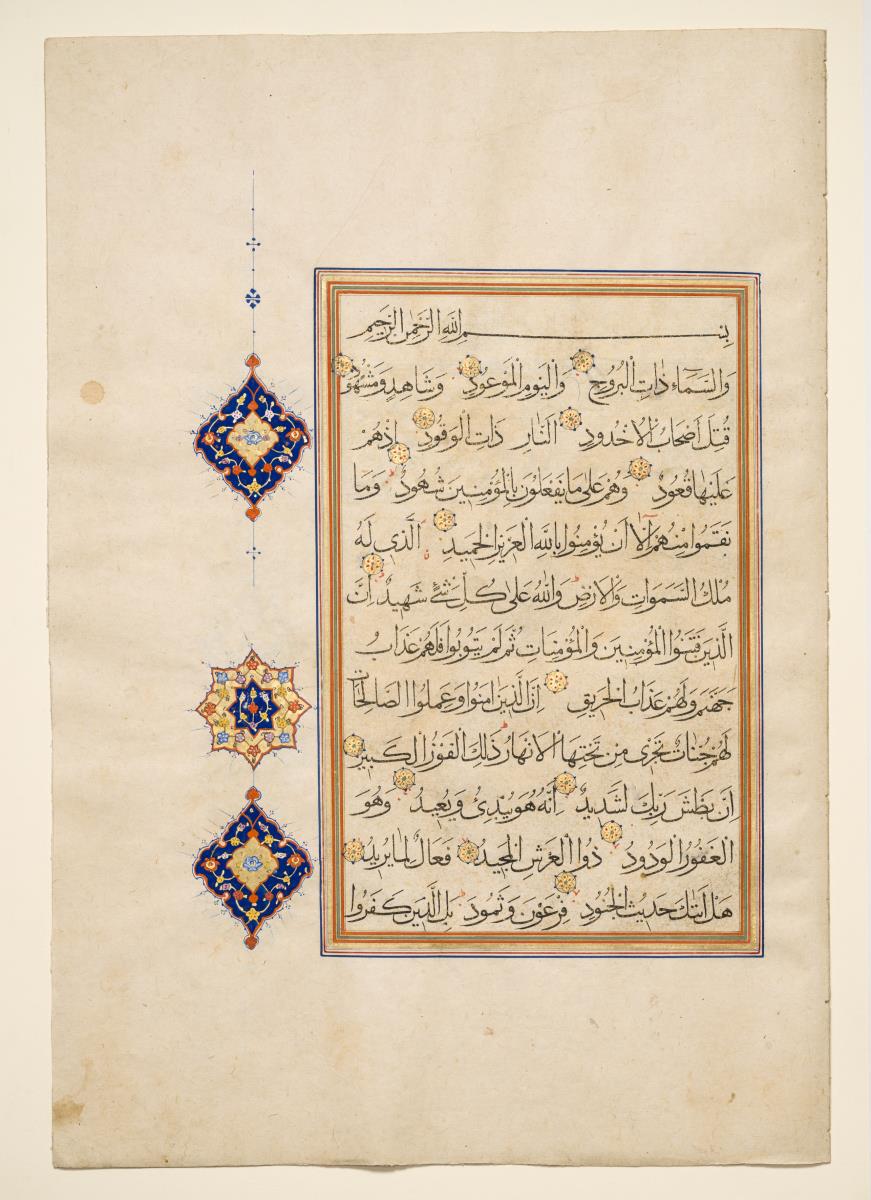 بِسْمِ اللَّهِ الرَّحْمٰنِ الرَّحِيمِ
وَالسَّمَاءِ ذَاتِ الْبُرُوجِ وَالْيَوْمِ الْمَوْعُودِ وَشَاهِدٍ وَمَشْهُودٍ
قُتِلَ أَصْحَابُ الْأُخْدُودِ النَّارِ ذَاتِ الْوَقُودِ إِذْ هُمْ
عَلَيْهَا قُعُودٌ وَهُمْ عَلٰى مَا يَفْعَلُونَ بِالْمُؤْمِنِينَ شُهُودٌ وَمَا
نَقَمُوا مِنْهُمْ إِلَّا أَنْ يُؤْمِنُوا بِاللَّهِ الْعَزِيزِ الْحَمِيدِ الَّذِي لَهُ
مُلْكُ السَّمَوَاتِ وَالْأَرْضِ وَاللَّهُ عَلٰى كُلِّ شَيْءٍ شَهِيدٌ إِنَّ
الَّذِينَ فَتَنُوا الْمُؤْمِنِينَ وَالْمُؤْمِنَاتِ ثُمَّ لَمْ يَتُوبُوا فَلَهُمْ عَذَابُ
جَهَنَّمَ وَلَهُمْ عَذَابُ الْحَرِيقِ إِنَّ الَّذِينَ اٰمَنُوا وَعَمِلُوا الصَّالِحَاتِ
لَهُمْ جَنَّاتٌ تَجْرِي مِنْ تَحْتِهَا الْأَنْهَارُ ذٰلِكَ الْفَوْزُ الْكَبِيرُ
إِنَّ بَطْشَ رَبِّكَ لَشَدِيدٌ إِنَّهُ هُوَ يُبْدِئُ وَيُعِيدُ وَهُوَ
الْغَفُورُ الْوَدُودُ ذُوا الْعَرْشِ الْمَجِيدُ فَعَّالٌ لِمَا يُرِيدُ
هَلْ أَتٰيكَ حَدِيثُ الْجُنُودِ فِرْعَوْنَ وَثَمُودَ بَلِ الَّذِينَ كَفَرُوا